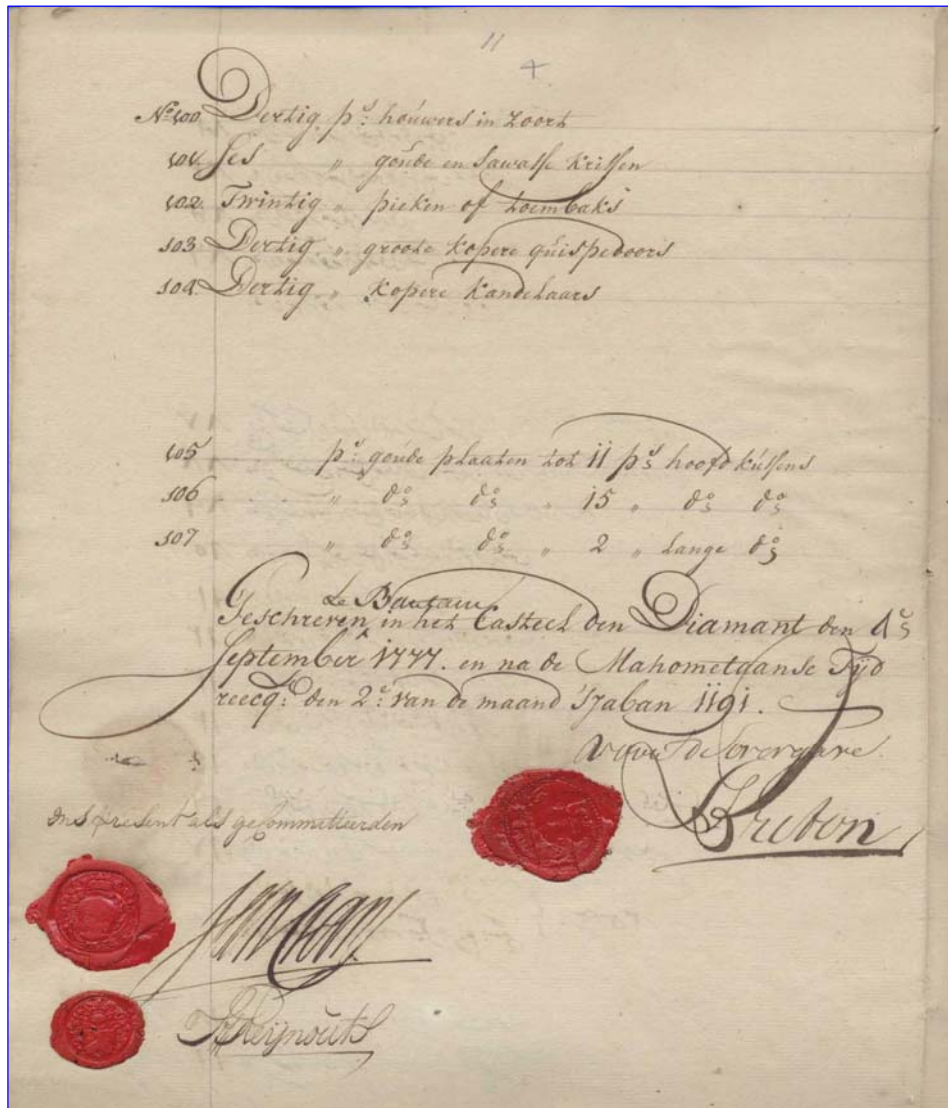 11
4
N.o 100 Dertig p.s houwers in zoort
101. Ses " goude en Sawasse krissen
102. Twintig " pieken of toembaks
103 Dertig " groote kopere quispedoors
104. Dertig " kopere kandelaars
105 p.s goude plaaten tot 11 p.s hoofd kussens
106 " d.o d.o " 15 " d.o d.o
107 " d.o d.o " 2 " lange d.o
te Bantam
Geschreven in het Casteel den Diamant den
September 1777. en na de Mahometaanse Tijd
reecq: den 2.e van de maand Sjaban 1191.
de overgave
Ons present als gecommitteerden
Breton
Reijnouts